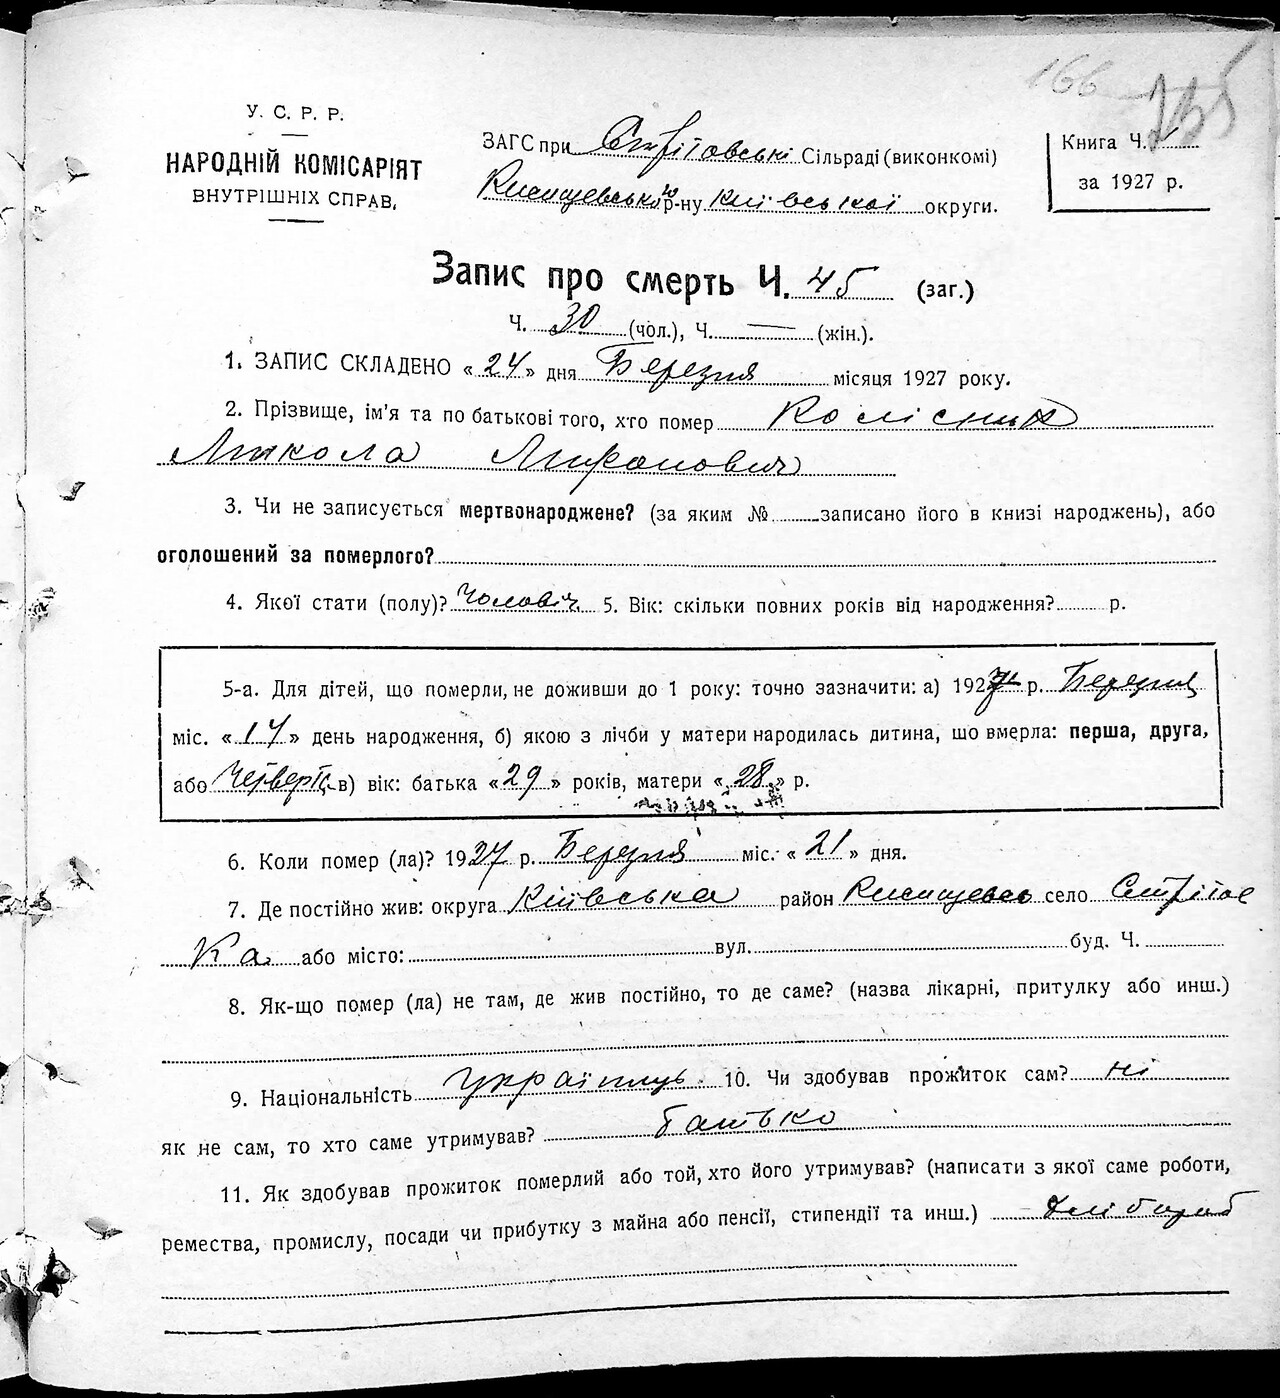 166
У. С. Р. Р.
НАРОДНІЙ КОМІСАРІЯТ
ВНУТРІШНІХ СПРАВ.
ЗАГС при Стрітовські Сільраді (виконкомі)
р-ну Київської округи.
Книга Ч.
за 1927 р.
Запис про смерть Ч. 45 (заг.)
Ч. 30 (чол.), Ч. — (жін.).
1. ЗАПИС СКЛАДЕНО « 24 » дня Березня місяця 1927 року.
2. Прізвище, ім'я та по батькові того, хто помер Колісник
Микола Миронович
3. Чи не записується мертвонароджене? (за яким № записано його в книзі народжень), або
оголошений за померлого?
4. Якої стати (полу)? Чоловіч. 5. Вік: скільки повних років від народження? р.
5-а. Для дітей, що померли, не доживши до 1 року: точно зазначити: а) 1927 р. Березня
міс. « 14 » день народження, б) якою з лічби у матери народилась дитина, що вмерла: перша, друга,
або Четверта в) вік: батька « 29 » років, матери « 28 » р.
6. Коли помер (ла)? 1927 р. Березня міс. « 21 » дня.
7. Де постійно жив: округа Київська район село Стрітов
ка або місто: вул. буд. Ч.
8. Як-що помер (ла) не там, де жив постійно, то де саме? (назва лікарні, притулку або инш.)
9. Національність українць 10. Чи здобував прожиток сам? ні
як не сам, то хто саме утримував? батько
11. Як здобував прожиток померлий або той, хто його утримував? (написати з якої саме роботи,
ремества, промислу, посади чи прибутку з майна або пенсії, стипендії та инш.) Хлібороб